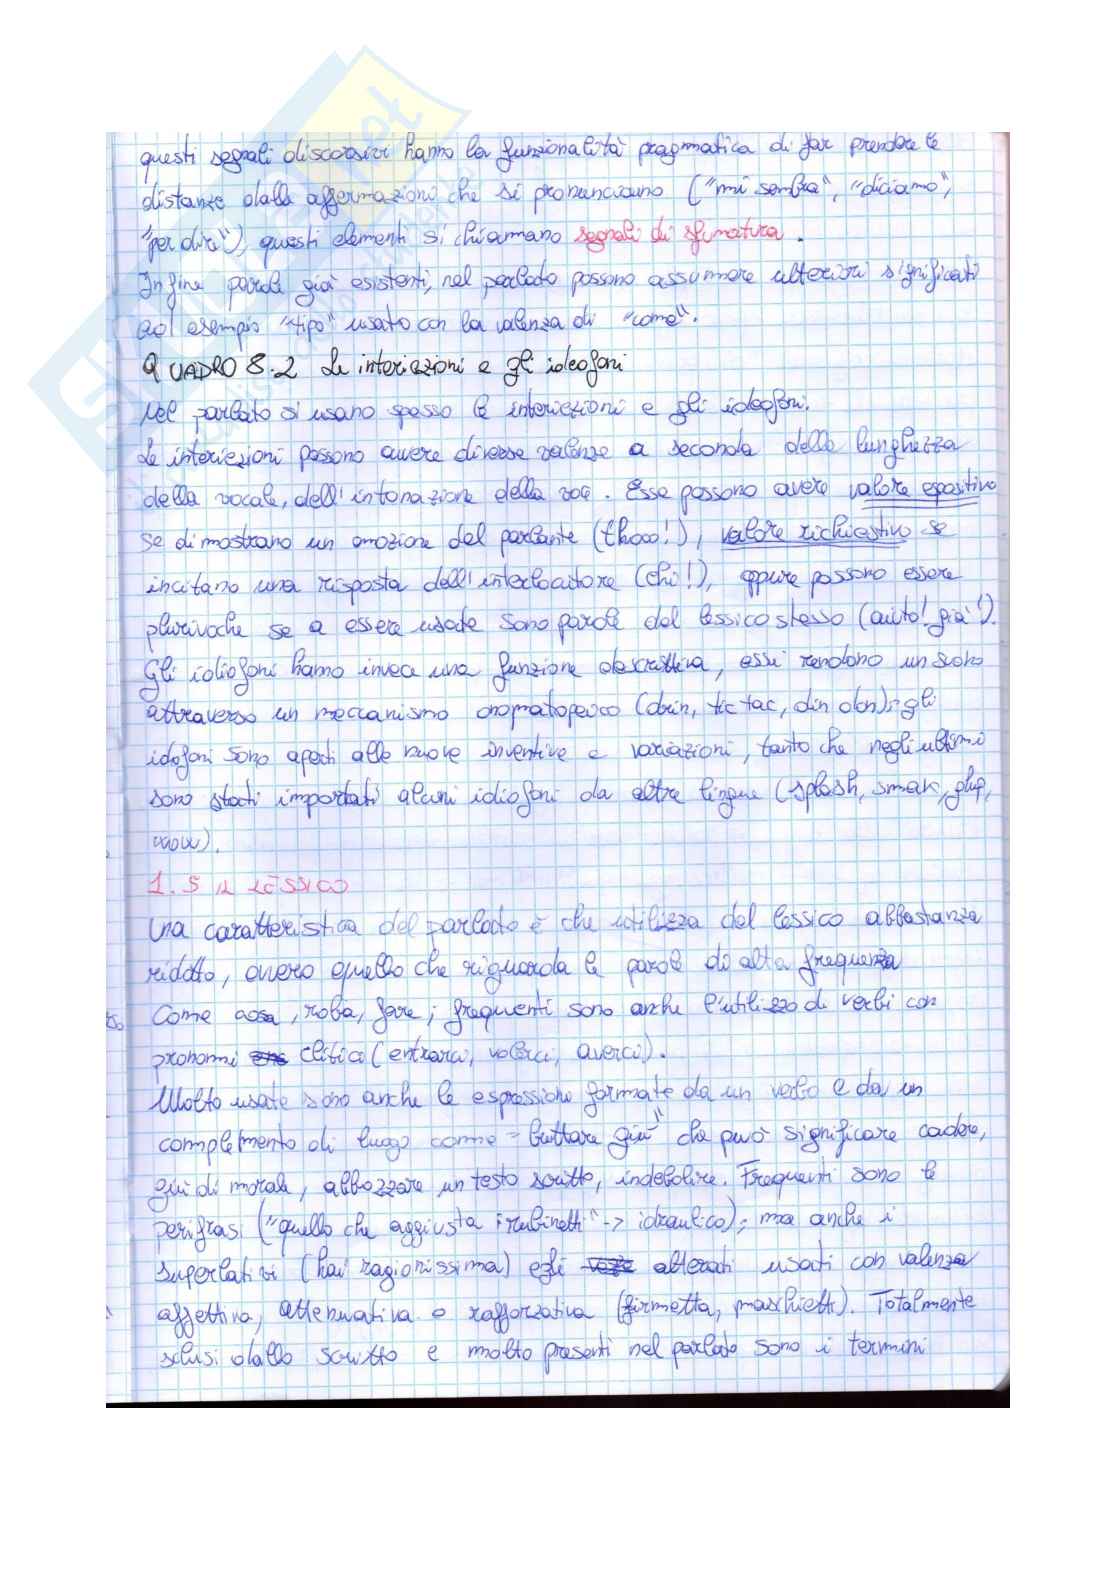 questi segnali discorsivi hanno la funzionalità pragmatica di far prendere le
distanze dalle affermazioni che si pronunciano ("mi sembra", "diciamo",
"per dire"), questi elementi si chiamano segnali di sfumatura.
Infine parole già esistenti, nel parlato possono assumere ulteriori significati
ad esempio "tipo" usato con la valenza di "come".
QUADRO 8.2 Le interiezioni e gli ideofoni
Nel parlato si usano spesso le interiezioni e gli ideofoni.
Le interiezioni possono avere diverse valenze a seconda della lunghezza
della vocale, dell'intonazione della voce. Esse possono avere valore espositivo
se dimostrano un emozione del parlante ( ), valore richiestivo se
incitano una risposta dell'interlocutore (ehi!), oppure possono essere
plurivoche se a essere usate sono parole del lessico stesso (aiuto! già!).
Gli idiofoni hanno invece una funzione descrittiva, essi rendono un suono
attraverso un meccanismo onomatopeico (drin, tic tac, din don); gli
idofoni sono aperti alle nuove inventive e variazioni, tanto che negli ultimi
sono stati importati alcuni idiofoni da altre lingue (splash, smak, glup,
waow).
1.5 IL LESSICO
Una caratteristica del parlato è che utilizza del lessico abbastanza
ridotto, ovvero quello che riguarda le parole di alta frequenza
Come cosa, roba, fare; frequenti sono anche l'utilizzo di verbi con
pronomi clitico (entrarci, volerci, averci).
Molto usate sono anche le espressione formate da un verbo e da un
complemento di luogo come "buttare giù" che può significare cadere,
giù di morale, abbozzare un testo scritto, indebolire. Frequenti sono le
perifrasi ("quello che aggiusta i rubinetti" -> idraulico); ma anche i
superlativi (hai ragionissima) e gli alterati usati con valenza
affettiva, attenuativa o rafforzativa (firmetta, maschietti). Totalmente
sclusi dallo scritto e molto presenti nel parlato sono i termini